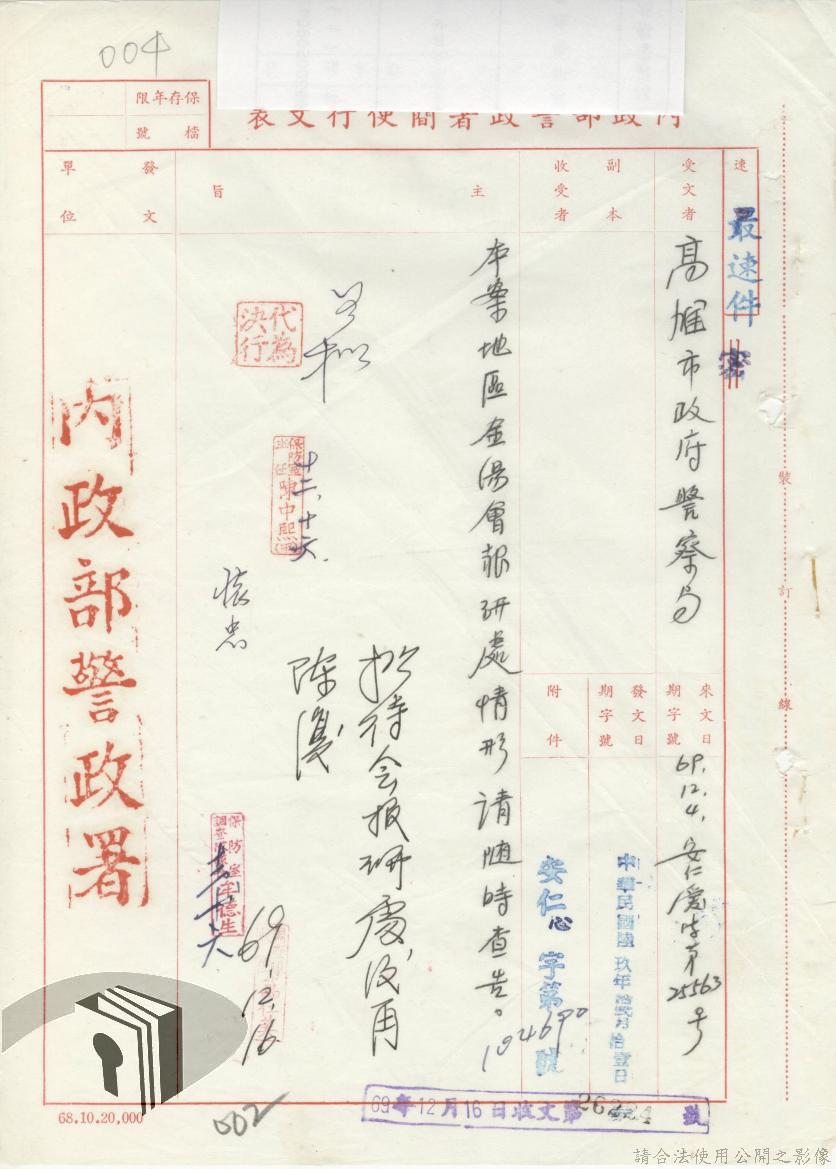 004
保存年限
檔號
內政部警政署簡便行文表
速
最速件
密
受文者
高雄市政府警察局
副本
收受者
來文日期字號
69.12.4.安仁愛字第25563號
發文日期字號
中華民國陸玖年拾貳月拾壹日
安仁心字第104690號
附件
主旨
本案地區金湯會報研處情形請隨時查告。
擬待会报研處後再
陳復
代為決行
保防室主任陳中熙
十二、十六.
69.12.16
發文單位
內政部警政署
裝訂線
68.10.20,000
002
69年12月16日收文第 號
請合法使用公開之影像